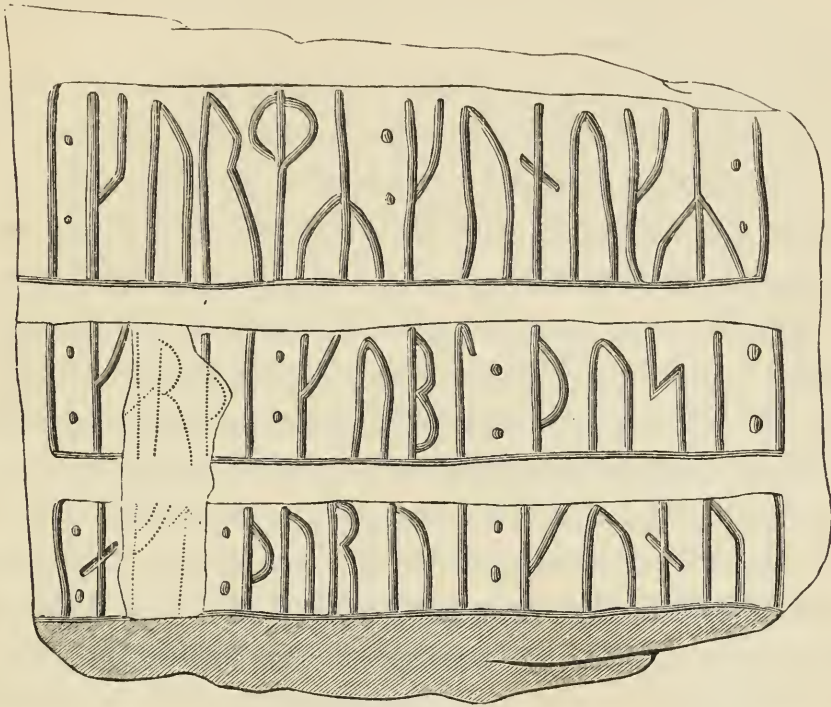 ᛬ ᚴᚢᚱᛘᛦ ᛬ ᚴᚢᚾᚢᚴᛦ ᛬
᛬ ᚴᛅᚱᚦᛁ ᛬ ᚴᚢ�Ⰱᛚ ᛬ ᚦᚢᛋᛁ ᛬
᛬ ᛅᚠᛏ ᛬ ᚦᚢᚱᚢᛁ ᛬ ᚴᚢᚾᚢ